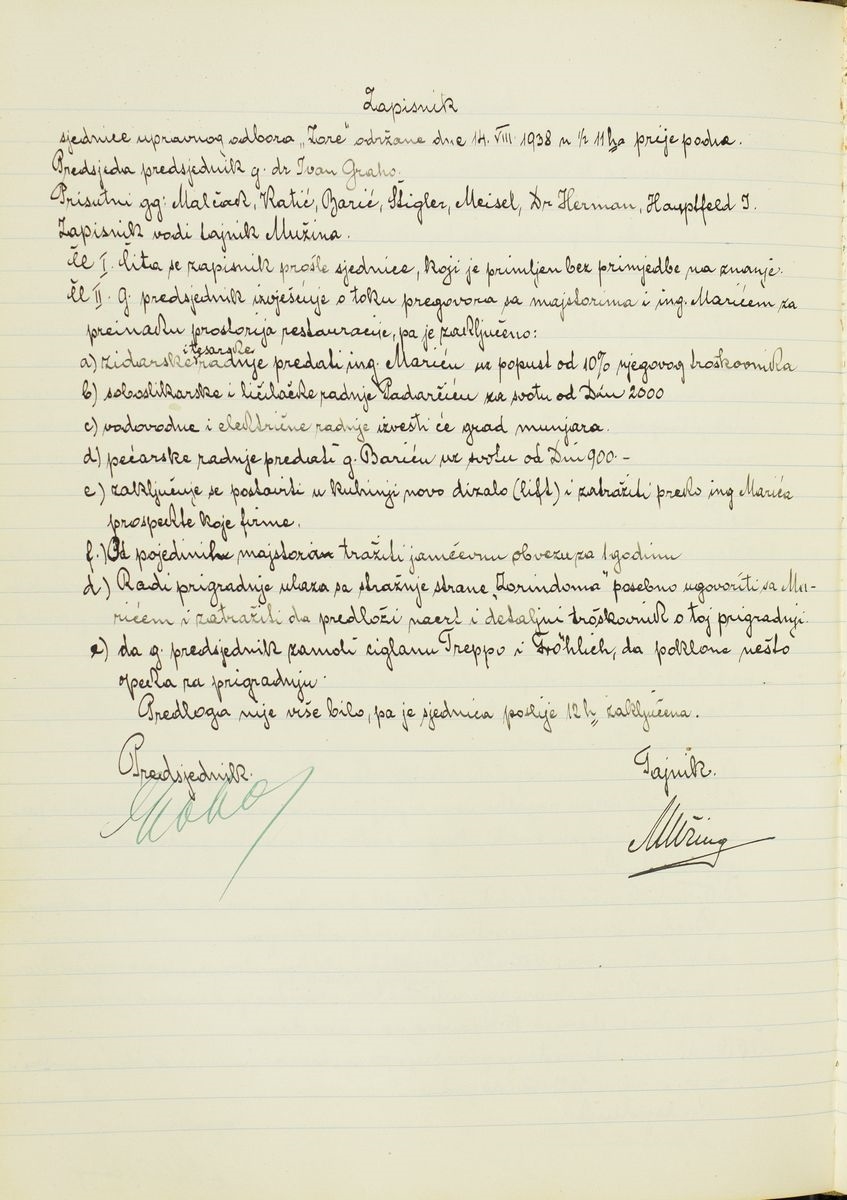 Zapisnik
sjednice upravnog odbora „Zore" održane dne 14. VIII. 1938 u ½ 11 h prije podne.
Predsjeda predsjednik g. dr Ivan Graho.
Prisutni gg: Malčak, Katić, Barić, Štigler, Meisel, Dr Herman, Hauptfeld I.
Zapisnik vodi tajnik Mužina.
Čl I. Čita se zapisnik prošle sjednice, koji je primljen bez primjedbe na znanje.
Čl II. G. predsjednik izvješćuje o toku pregovora sa majstorima i ing. Marićem za
preinaku prostorija restauracije, pa je zaključeno:
a) zidarske i tesarske radnje predati ing. Mariću uz popust od 10% njegovog troškovnika
b) soboslikarske i ličilačke radnje Padarčiću za svotu od Din 2000
c) vodovodne i električne radnje izvesti će grad munjara.
d) pećarske radnje predati g. Bariću uz svotu od Din 900.-
e) zaključuje se postaviti u kuhinji novo dizalo (lift) i zatražiti preko ing Marića
prospekte koje firme.
f.) Od pojedinih majstora tražiti jamčevnu obvezu za 1 godinu
d) Radi prigradnje ulaza sa stražnje strane „Zorindoma" posebno ugovoriti sa Ma-
rićem i zatražiti da predloži nacrt i detaljni troškovnik o toj prigradnji.
e) da g. predsjednik zamoli ciglanu Treppo i Fröhlich, da poklone nešto
opeka za prigradnju.
Predloga nije više bilo, pa je sjednica poslije 12 h zaključena.
Predsjednik. Tajnik.